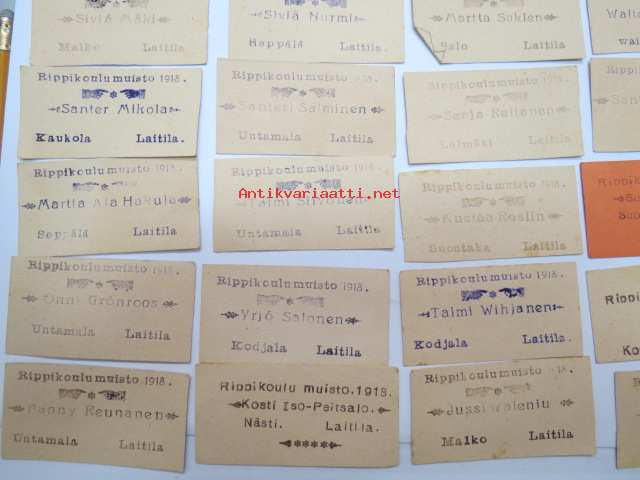 Malko Laitila
Sivia Nurmi
Happälä Laitila
Martta
Laitila
Rippikoulumuisto 1918.
Santer Mikola
Kaukola Laitila.
Rippikoulumuisto 1918.
Santeri Salminen
Untamala Laitila
Rippikoulumuisto 1918.
Laitila
Rippikoulumuisto 1918.
Martta Ala Hakula
Seppälä Laitila
Rippikoulumuisto 1918.
Taimi
Untamala Laitila
Rippikoulumuisto 1918.
Kustaa Roslin
Suontaka Laitila
Rippikoulumuisto 1918.
Onni Grönroos
Untamala Laitila
Rippikoulumuisto 1918.
Yrjö Salonen
Kodjala Laitila
Rippikoulumuisto 1918.
Taimi Wihjanen
Kodjala Laitila
Rippikoulumuisto 1918.
Fanny Reunanen
Untamala Laitila
Rippikoulu muisto.1918.
Kosti Iso-Peitsalo.
Nästi. Laitila.
Rippikoulumuisto 1918.
Jussi
Malko Laitila
Antikvariaatti.net